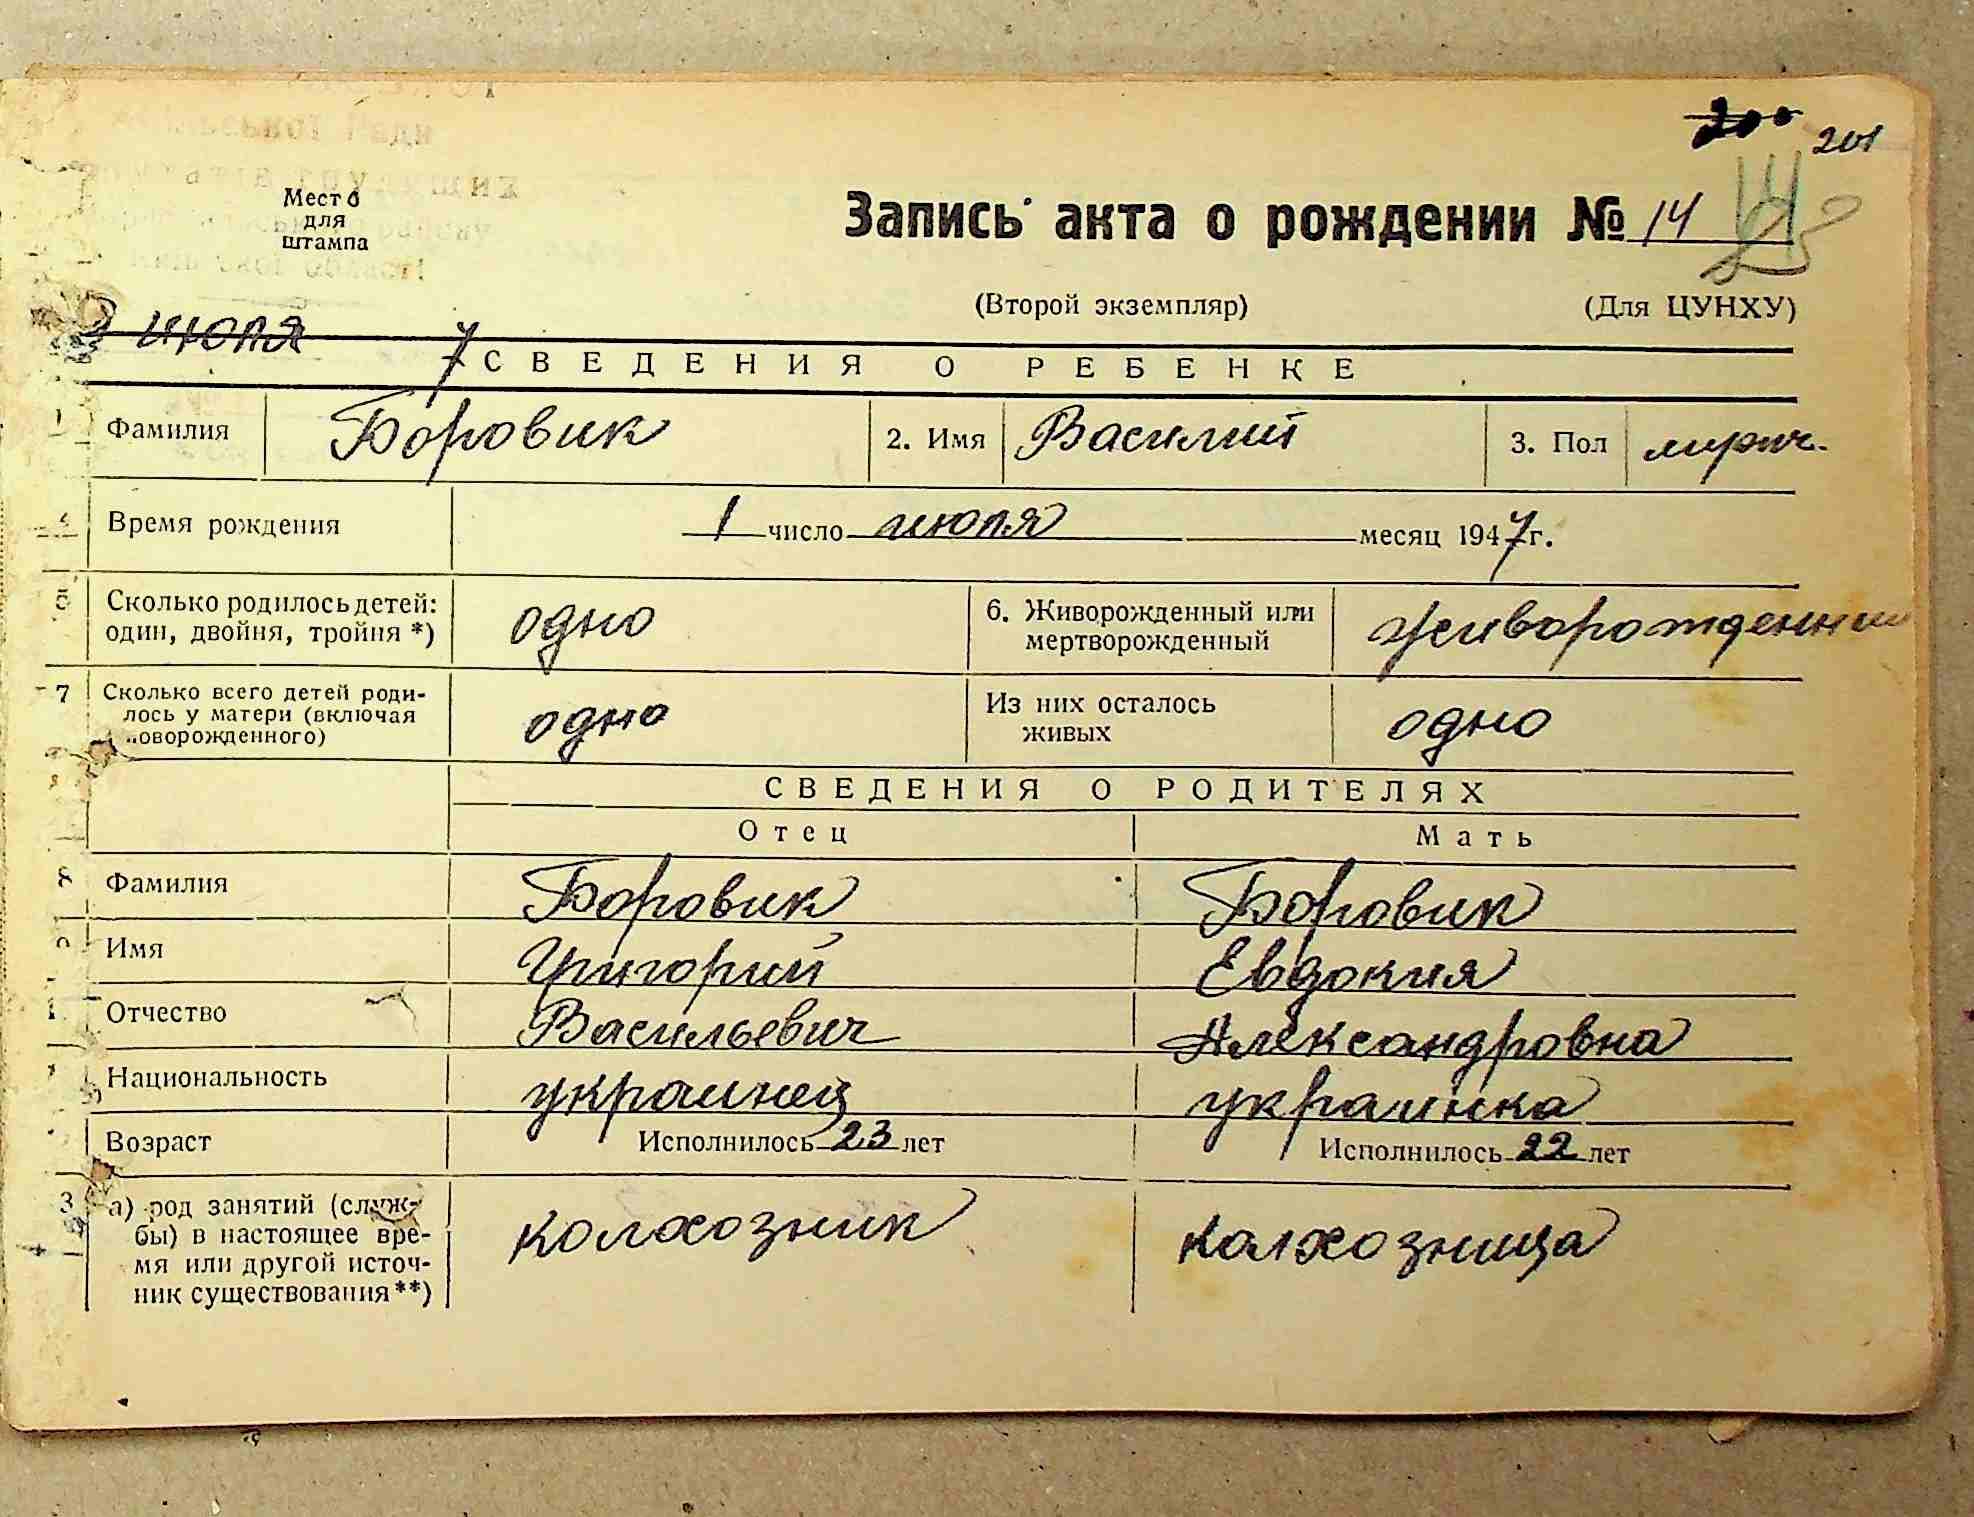 201
Место
для
штампа
Запись акта о рождении № 14
(Второй экземпляр) (Для ЦУНХУ)
июля 7
СВЕДЕНИЯ О РЕБЕНКЕ
Фамилия Боровик 2. Имя Василий 3. Пол мужч.
Время рождения 1 число июля месяц 1947 г.
5 Сколько родилось детей: один, двойня, тройня *) одно 6. Живорожденный или мертворожденный живорожденний
7 Сколько всего детей родилось у матери (включая новорожденного) одно Из них осталось живых одно
СВЕДЕНИЯ О РОДИТЕЛЯХ
Отец Мать
8 Фамилия Боровик Боровик
Имя Григорий Евдокия
Отчество Васильевич Александровна
Национальность украинец украинка
Возраст Исполнилось 23 лет Исполнилось 22 лет
3 а) род занятий (службы) в настоящее время или другой источник существования**) колхозник колхозница